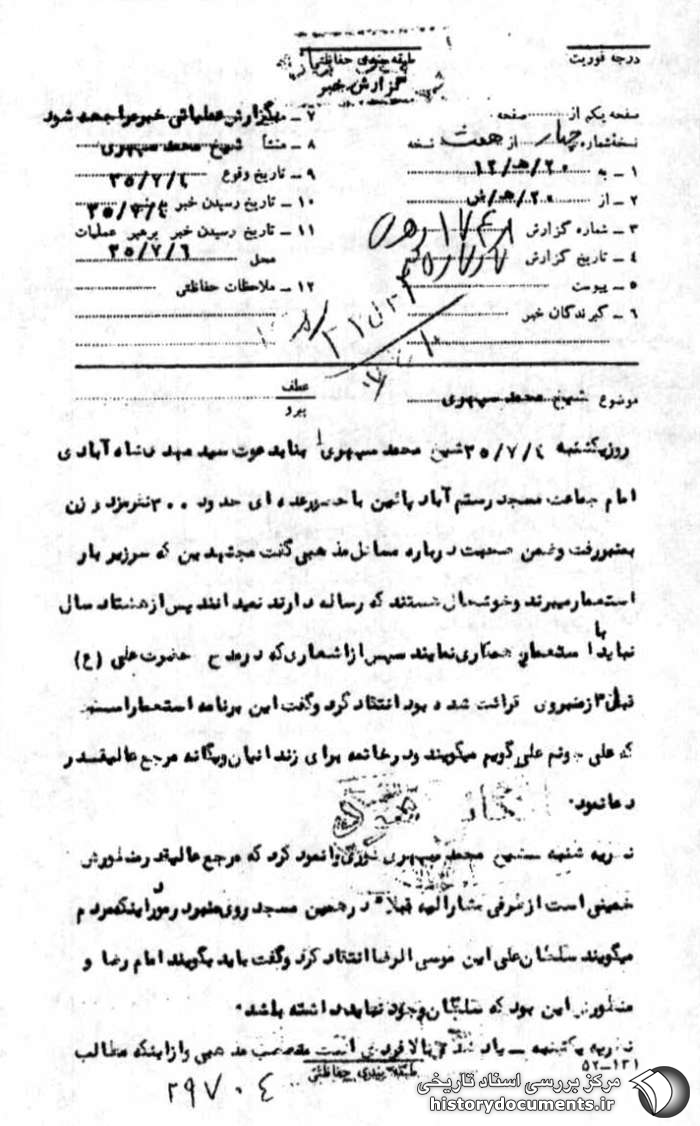 درجه فوریت
طبقه بندی حفاظتی
گزارش خبر
صفحه یکم از صفحه
نسخه شماره چهار از هفت نسخه
۱ ـ به ۲۰/هـ/۱۲
۲ ـ از ۲۰/هـ/ش
۳ ـ شماره گزارش
۴ ـ تاریخ گزارش
۵ ـ پیوست
۶ ـ گیرندگان خبر
۷ ـ بگزارش عملیاتی خبر مراجعه شود
۸ ـ منشأ شیخ محمد سپهری
۹ ـ تاریخ وقوع ۳۵/۷/۴
۱۰ ـ تاریخ رسیدن خبر به منبع ۳۵/۷/۴
۱۱ ـ تاریخ رسیدن خبر برهبر عملیات
محل ۳۵/۷/۶
۱۲ ـ ملاحظات حفاظتی
موضوع شیخ محمد سپهری
عطف
پیرو
روز یکشنبه ۳۵/۷/۴ شیخ محمد سپهری بنا بدعوت سید مهدی شاه آبادی
امام جماعت مسجد رستم آباد پائین با حضور عده ای حدود ۳۰۰ نفر مرد و زن
بمنبر رفت و ضمن صحبت درباره مسائل مذهبی گفت مجتهدین که سر زیر بار
استعمار میبرند و خوشحال هستند که رساله دارند نمیدانند پس از هشتاد سال
نباید با استعمار همکاری نمایند سپس از اشعاری که در مدح حضرت علی (ع)
قبل از منبروی قرائت شده بود انتقاد کرد و گفت این برنامه استعمار است
که علی جونم علی گویم میگویند و در خاتمه برای زندانیان و یگانه مرجع عالیقدر
دعا نمود.
نظریه شنبه ـ شیخ محمد سپهری وانمود کرد که مرجع عالیقدر منظورش
خمینی است از طرفی مشارالیه قبلا در همین مسجد روی منبر در مورد اینکه مردم
میگویند سلطان علی ابن موسی الرضا انتقاد کرد و گفت باید بگویند امام رضا و
منظورش این بود که سلطان وجود نباید داشته باشد.
نظریه یکشنبه ـ یاد شده بالا فردی است متعصب مذهبی و از اینکه مطالب
طبقه بندی حفاظتی
۵۲-۱۳۱
۲۹۷۰۴
مرکز بررسی اسناد تاریخی
historydocuments.ir